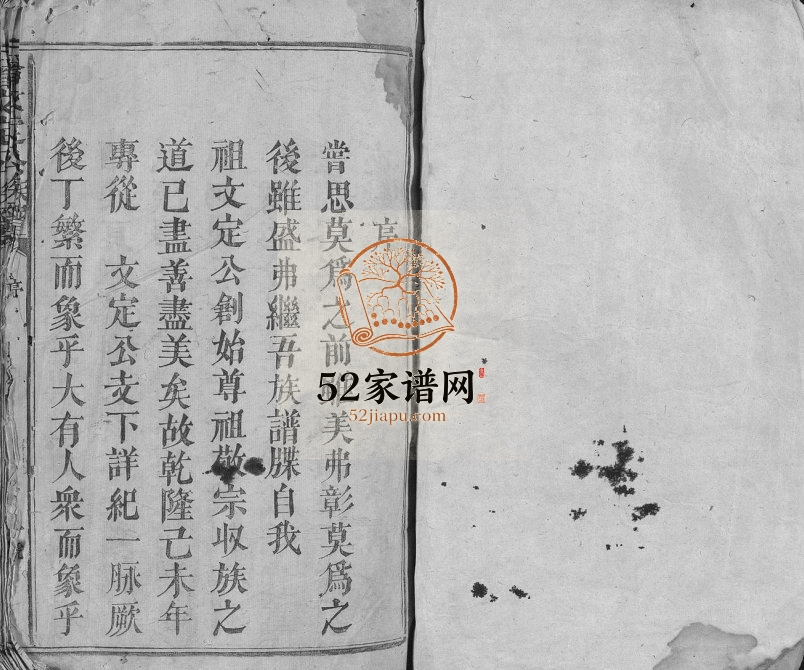 序
嘗思莫爲之前雖美弗彰莫爲之
後雖盛弗繼吾族譜牒自我
祖文定公創始尊祖敬宗収族之
道已盡善盡美矣故乾隆己未年
專從 文定公支下詳紀一脉厥
後丁繁而象乎大有人衆而象乎
序
52家谱网
52jiapu.com